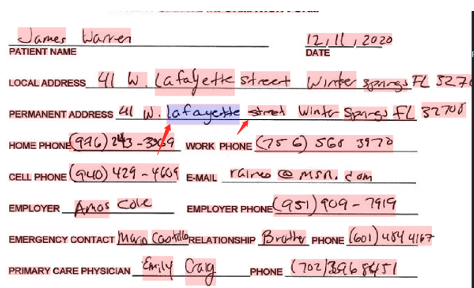 James Warren 12, 11, 2020
PATIENT NAME DATE
LOCAL ADDRESS 41 W. Lafayette street Winter Springs FL 3270
PERMANENT ADDRESS 41 W. Lafayette street Winter Springs FL 32708
HOME PHONE (996) 243-3969 WORK PHONE (756) 560 3970
CELL PHONE (940) 429-4609 E-MAIL raineo @ msn. com
EMPLOYER Amos Cole EMPLOYER PHONE (951) 909-7919
EMERGENCY CONTACT Maria Castillo RELATIONSHIP Brother PHONE (601) 484 4167
PRIMARY CARE PHYSICIAN Emily Craig PHONE (702) 396 8451